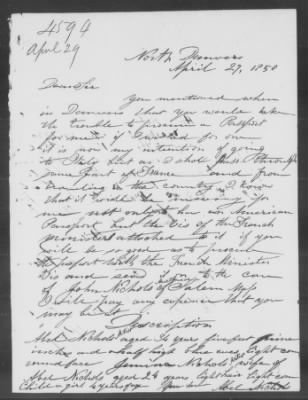 4594
April 29
North Danvers
April 27, 1850
Dear Sir
You mentioned when
in Danvers that you would take
the trouble to procure a Passport
for me if I wished for one
it is now my intention of going
to Italy but as I shall pass through
some part of France and from
traveling in the country I know
that it will be necessary for
me not only to have an American
Passport but the Vis of the French
Minister attached to it if you
will be so good as to procure
the passport with the French Minister
Vis and send it on to the care
of John Nichols Salem Mass
I will pay any expense that you
may be at
Description
Abel Nichols aged 34 years five feet nine
inches and half high blue eyes light com
Nichols wife
Abel Nichols aged 24 years light hair light com
Child a girl 4 years of age Abel Nichols